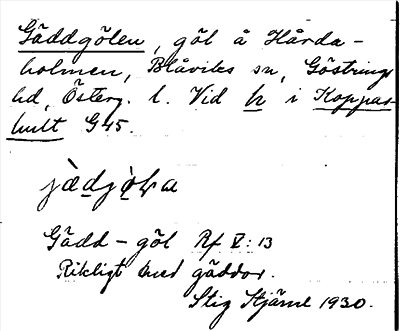 Gäddgölen, göl å Hårda-
holmen, Blåviks sn, Göstrings
hd, Österg. l. Vid h i Koppar-
hult G45.
Gädd-göl Rf V:13
Rikligt med gäddor.
Stig Stjärne 1930.